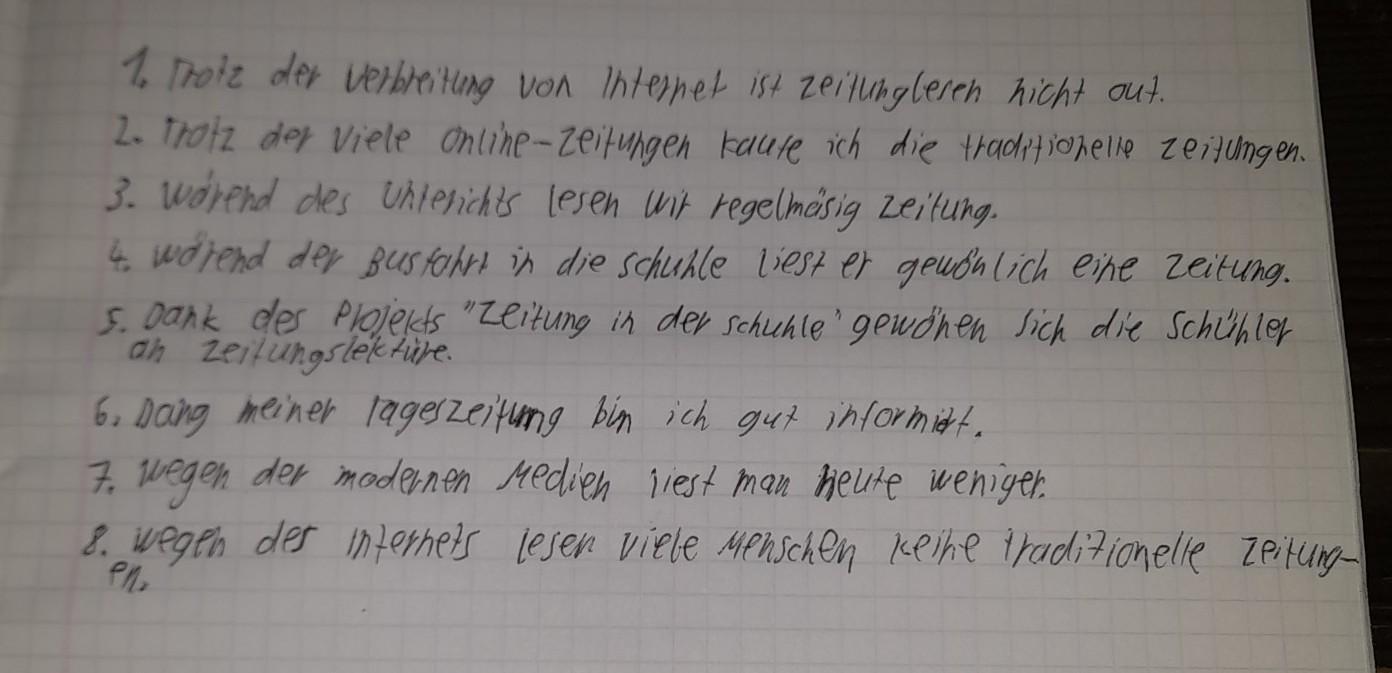 1. Trotz der Verbreitung von Internet ist zeitunglesen nicht out.
2. Trotz der viele Online-Zeitungen kaufe ich die traditionelle Zeitungen.
3. Wärend des Unterichts lesen wir regelmäsig Zeitung.
4. wärend der Busfahrt in die schuhle liest er gewöhnlich eine Zeitung.
5. Dank des Projekts "Zeitung in der schuhle" gewönen sich die Schühler
an Zeitungslektüre.
6. Dang meiner Tageszeitung bin ich gut informirt.
7. Wegen der modernen Medien liest man heute weniger.
8. wegen des internets lesen viele Menschen keine traditionelle Zeitung-
en.